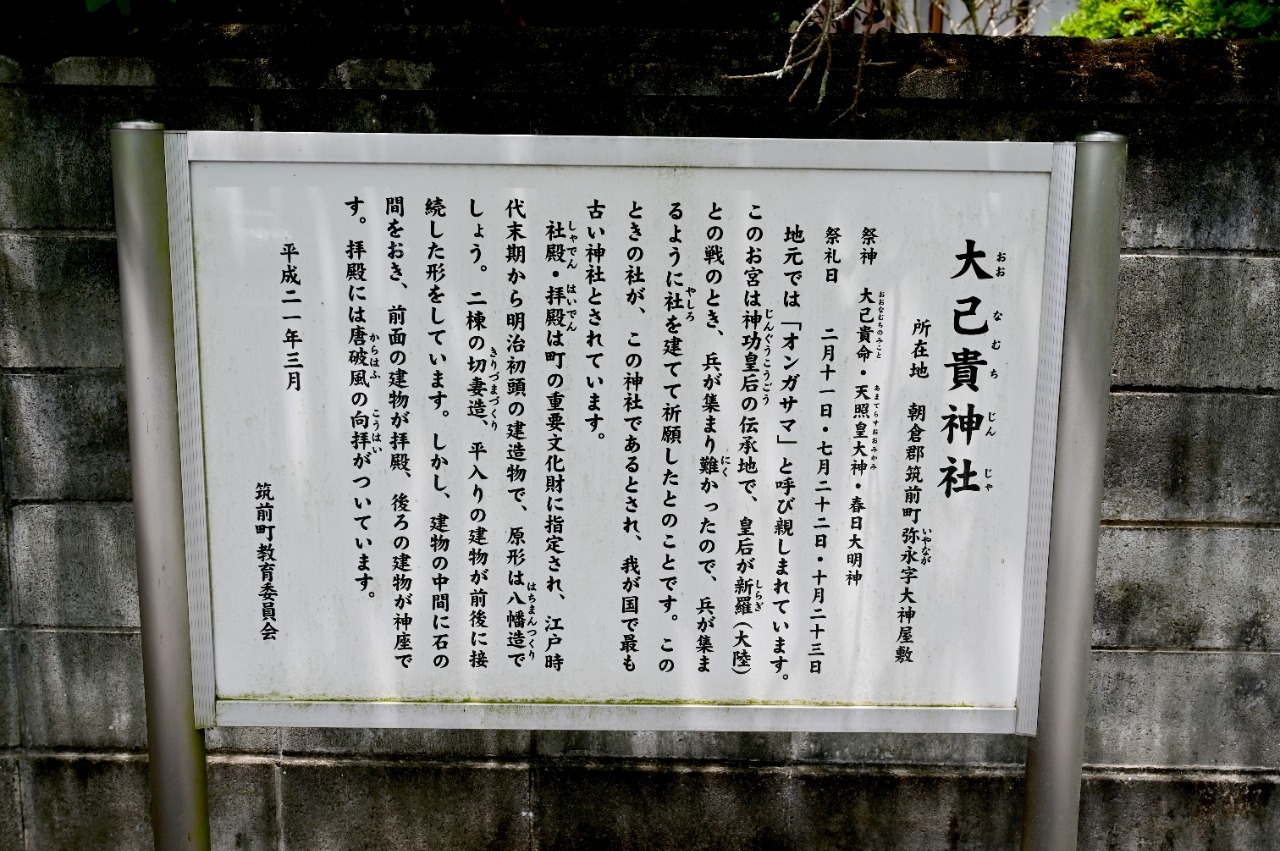 大己貴神社
所在地　朝倉郡筑前町弥永字大神屋敷
祭神　大己貴命・天照皇大神・春日大明神
祭礼日　二月十一日・七月二十二日・十月二十三日
地元では「オンガサマ」と呼び親しまれています。
このお宮は神功皇后の伝承地で、皇后が新羅(大陸)
との戦のとき、兵が集まり難かったので、兵が集ま
るように社を建てて祈願したとのことです。この
ときの社が、この神社であるとされ、我が国で最も
古い神社とされています。
社殿・拝殿は町の重要文化財に指定され、江戸時
代末期から明治初頭の建造物で、原形は八幡造で
しょう。二棟の切妻造、平入りの建物が前後に接
続した形をしています。しかし、建物の中間に石の
間をおき、前面の建物が拝殿、後ろの建物が神座で
す。拝殿には唐破風の向拝がついています。
平成二一年三月
筑前町教育委員会